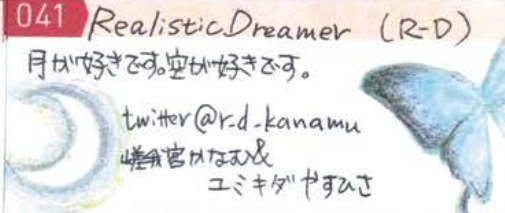 041 RealisticDreamer (R-D)
月が好きです。空が好きです。
twitter@r_d_kanamu
嵯峨宮かなむ&
ユミキダやすひさ